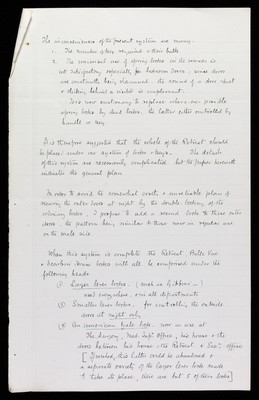 The inconveniences of the present system are many.
1. The number of keys required & their bulk
2. The universal use of spring locks in the wards is
not satisfactory especially for bedroom doors; since doors
are constantly being slammed: the sound of a door shut
& sticking behind a visitor is unpleasant.
It is now customary to replace where ever possible
spring locks by dead locks, the latter either controlled by
handle or key.
It is therefore suggested that the whole of the Retreat should
be placed under one system of locks & keys. The details
of this system are necessarily complicated but the paper herewith
indicates the general plan
In order to avoid the somewhat costly & unreliable plan of
securing the outer doors at night by the double locking of the
ordinary locks, I propose to add a second lock to these outer
doors, the pattern being similar to those now in regular use
on the male side.
When this system is complete the Retreat, Belle Vue
& Dearborn House locks will all be comprised under the
following heads
① Large lever locks. (such as Gibbons')
used everywhere, & in all departments
② Smaller lever locks. for controlling the outside
doors at night only
③ An American Yale lock. now in use at
The Surgery, Med. Supt's Office, his house & the
doors between his house & the Retreat & Sec's office
[If needed, this latter could be abandoned &
a separate variety of the larger lever lock made
to take its place, there are but 5 of these locks]